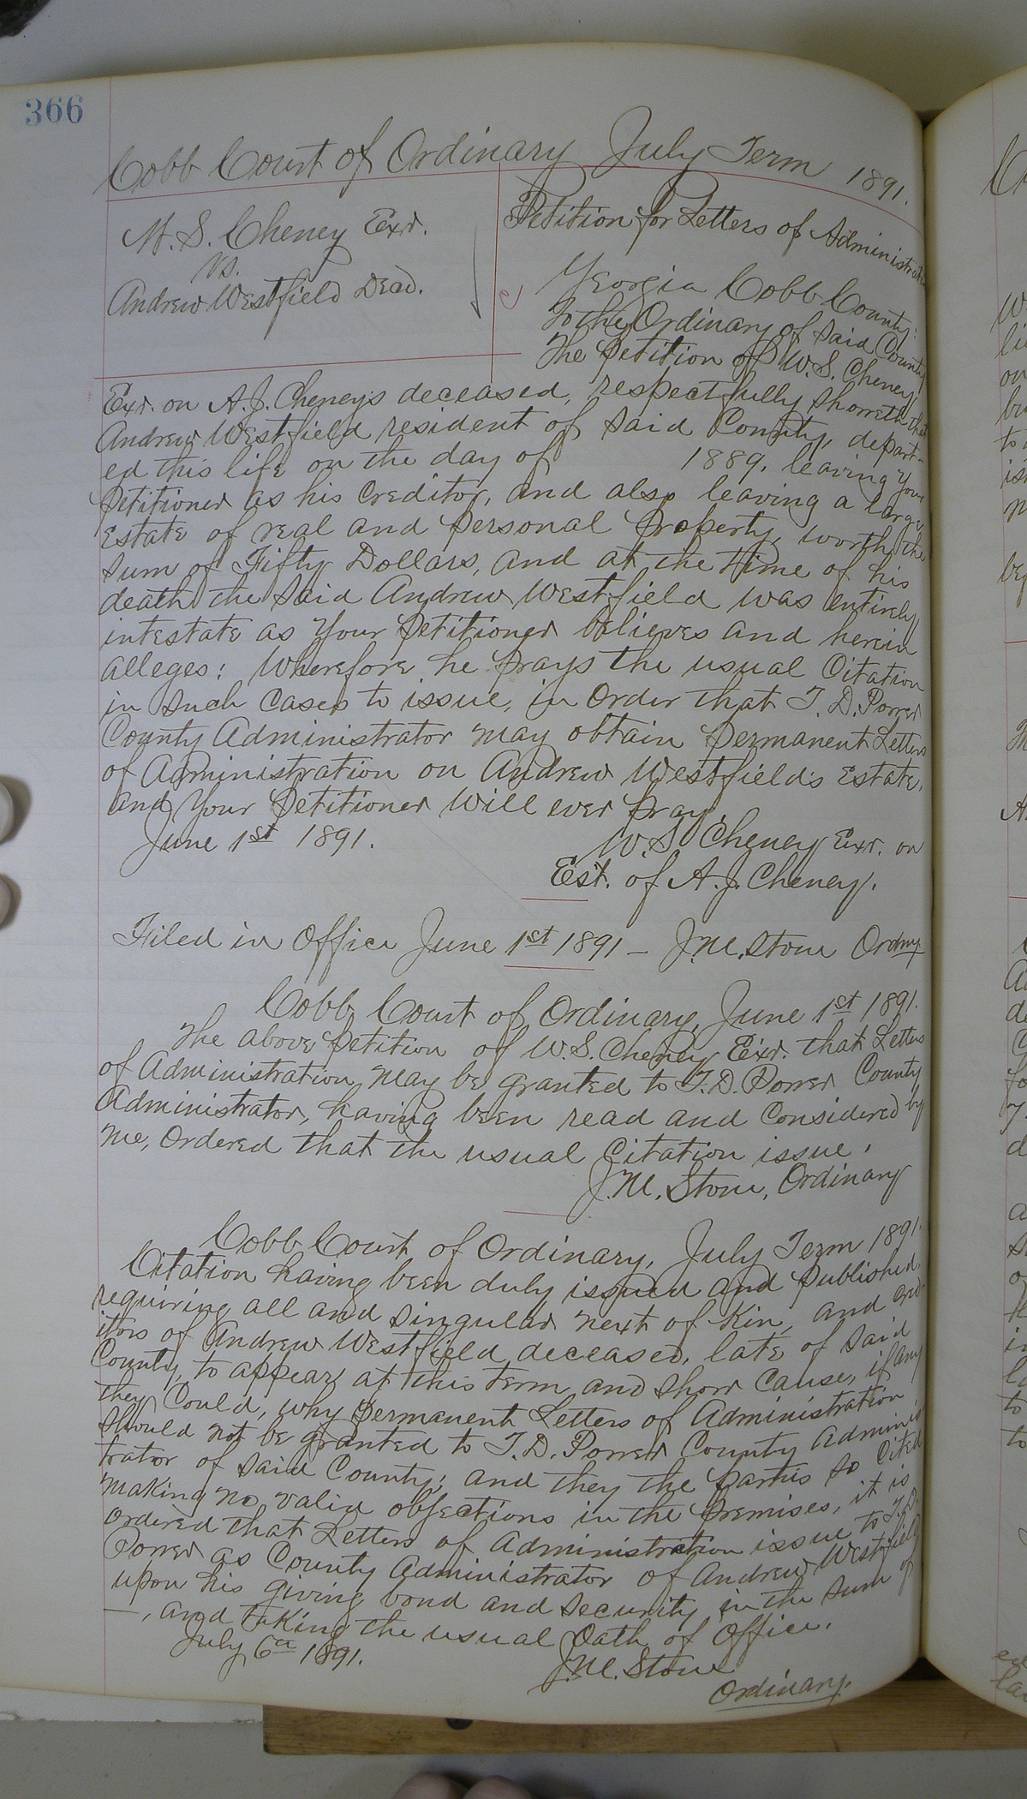 366
Cobb Court of Ordinary July Term 1891.
W. S. Cheney Exr.
vs.
Andrew Westfield Dead.
Petition for Letters of Administration
Georgia Cobb County:
To the Ordinary of said County
The Petition of W. S. Cheney,
Exr. on A. J. Cheney's deceased, respectfully showeth that
Andrew Westfield resident of said County, depart-
ed this life on the day of 1889, leaving your
Petitioner as his Creditor, and also leaving a large
Estate of real and personal property, worth the
sum of Fifty Dollars, and at the time of his
death the said Andrew Westfield was entirely
intestate as your petitioner believes and herein
alleges: Wherefore he prays the usual Citation
in such cases to issue, in order that T. D. Power
County Administrator may obtain Permanent Letters
of Administration on Andrew Westfield's Estate,
and your petitioner will ever pray.
June 1st 1891.
W. S. Cheney Exr. on
Est. of A. J. Cheney.
Filed in Office June 1st 1891 — J. M. Stone Ordny
Cobb Court of Ordinary, June 1st 1891.
The above petition of W. S. Cheney Exr. that Letters
of Administration may be granted to T. D. Power County
Administrator, having been read and considered by
me, Ordered that the usual Citation issue.
J. M. Stone, Ordinary
Cobb Court of Ordinary, July Term 1891.
Citation having been duly issued and published
requiring all and singular next of kin, and cred-
itors of Andrew Westfield deceased, late of said
County, to appear at this term, and show cause, if any
they could, why permanent Letters of Administration
should not be granted to T. D. Power County Adminis-
trator of said County; and they the parties so cited
making no valid objections in the premises, it is
ordered that Letters of Administration issue to T. D.
Power as County Administrator of Andrew Westfield
upon his giving bond and security in the sum of
—, and taking the usual Oath of Office.
July 6th 1891.
J. M. Stone
Ordinary.